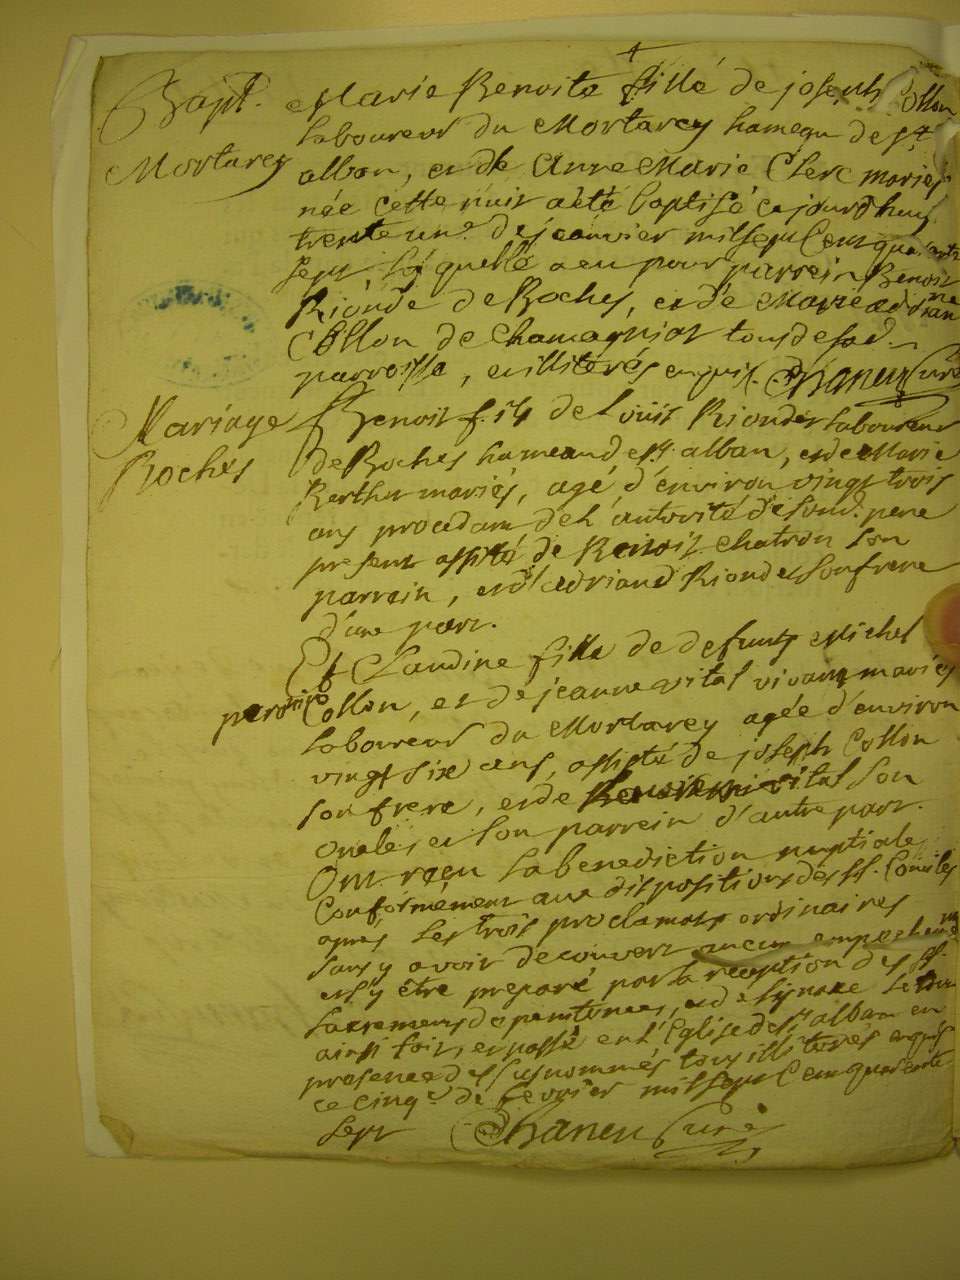 4
Bapt. Marie Benoite fille de joseph Collon
Laboureur du Mortarey hameau de st.
Mortarey alban, et de Anne Marie Clerc mariés
née cette nuit a été baptisé ce jourdhuy
trente un.e de janvier mil sept cent quarante
sept. Laquelle a eu pour parrein Benoit
Rionde de Roches, et de Marie
Collon de Chamagniat tous de lad.
parroisse, et illiterés enquis. Chaneu Curé
Mariage Benoit fils de Loüis Riondet Laboureur
Roches de Roches hameau de st. alban, et de Marie
Berthet mariés, agé d'environ vingt trois
ans procedant de l'autorité de sond. pere
present assisté de Benoit Chatron son
parrein, et d'adriand Riondet son frere
d'une part.
Et Claudine fille de defunt Michel
Collon, et de jeanne vital vivant mariés
Laboureur du Mortarey agée d'environ
vingt six ans, assisté de joseph Collon
son frere, et de vital son
oncle, et son parrein d'autre part.
Ont reçu la benediction nuptiale
Conformément aux dispositions des SS. Conciles
aprés les trois proclamats ordinaires
sans y avoir decouvert aucun empechem.
et s'y être preparé par la reception des SS.
sacremens de penitence, et de
ainsi fait, et passé en l'Eglise de st. alban en
presence des susnommés tous illiterés enquis
ce cinq.e de fevrier mil sept cent quarente
sept Chaneu Curé